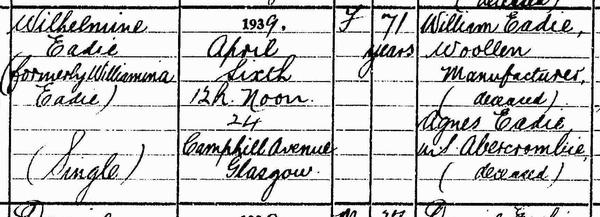 (deceased)
Wilhelmine
Eadie
(formerly Williamina
Eadie)
(Single)
1939.
April
Sixth
12h. Noon.
24
Camphill Avenue
Glasgow.
F
71
years
William Eadie,
Woollen
Manufacturer,
(deceased)
Agnes Eadie,
m.s. Abercrombie,
(deceased)
1939